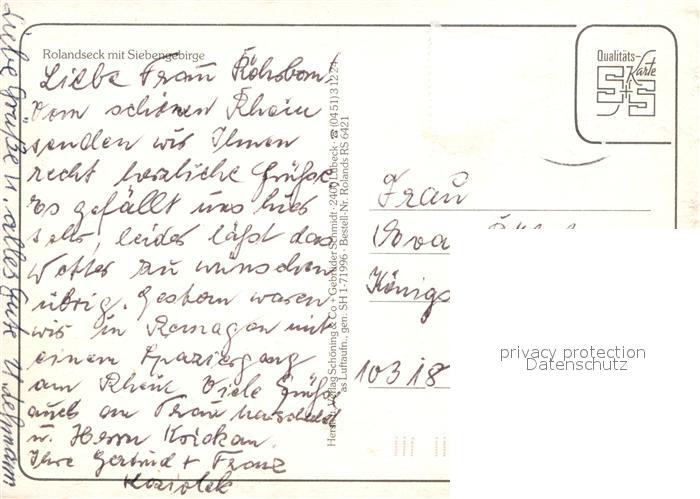 Rolandseck mit Siebengebirge
Liebe Frau
Vom schönen Rhein
senden wir Ihnen
recht herzliche Grüße
Es gefällt uns hier
sehr, leider läßt das
Wetter zu wünschen
übrig. Gestern waren
wir in Remagen mit
einem Spaziergang
am Rhein Viele Grüße
auch an Frau
u. Herrn
Ihre Gertrud + Franz
Koziolek
Liebe Grüße u. alles Gute
Herstell. Verlag Schöning & Co + Gebrüder Schmidt · 2400 Lübeck · ☎ (0451) 31274
as Luftaufn., gen. SH 1-71996 · Bestell-Nr. Rolands RS 6421
Qualitäts-
Karte
S+S
Frau
Königs
10318
privacy protection
Datenschutz